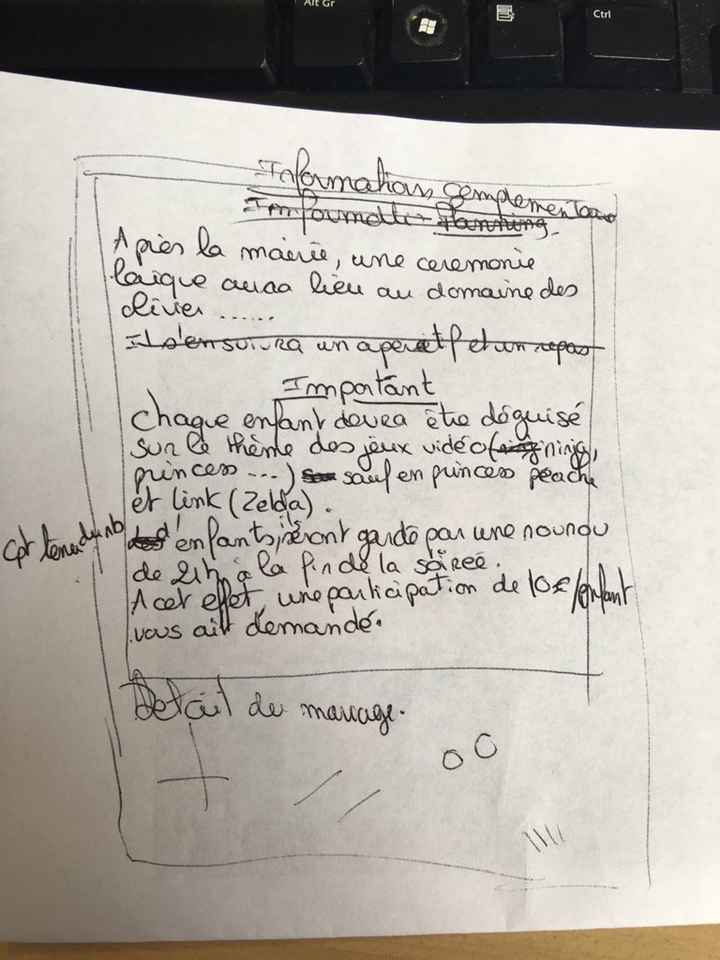 Alt Gr
Ctrl
Informations complementaires
Informatio Planning.
Après la mairie, une ceremonie
laïque aura lieu au domaine des
olivier ......
Il s'en suivra un aperetif et un repas
Important
Chaque enfant devra être déguisé
sur le thème des jeux vidéo (ninja,
princess ...) sauf en princess peache
et Link (Zelda).
Cpt tenu du nb
d'enfants, ils seront gardé par une nounou
de 21h à la fin de la soireé.
A cet effet, une participation de 10€/enfant
vous ait demandé.
Détail du mariage.